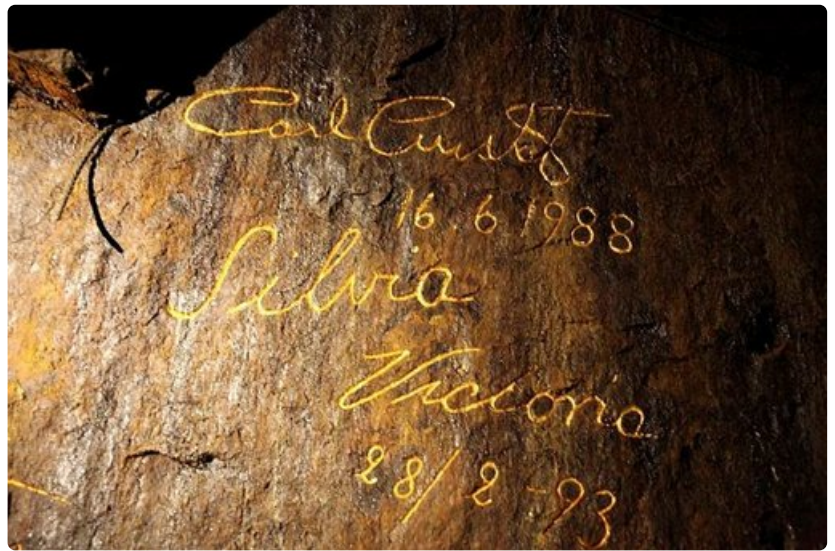 Carl Gustaf
16.6 1988
Silvia
Victoria
28/2-93